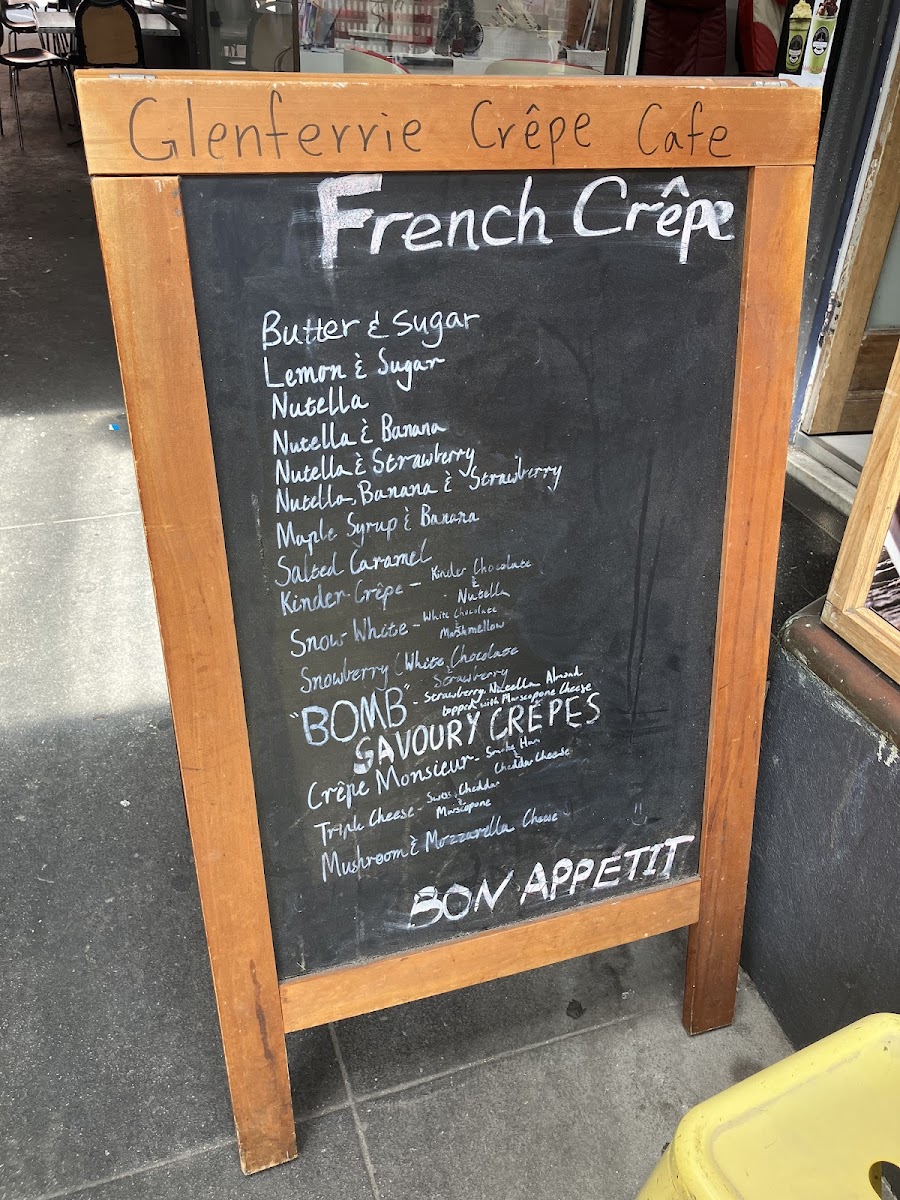 Glenferrie Crêpe Cafe
French Crêpe
Butter & Sugar
Lemon & Sugar
Nutella
Nutella & Banana
Nutella & Strawberry
Nutella, Banana & Strawberry
Maple Syrup & Banana
Salted Caramel
Kinder Crêpe - Kinder Chocolate
&
Nutella
Snow White - White Chocolate
&
Marshmellow
Snowberry (White Chocolate
Strawberry
"BOMB" - Strawberry, Nutella Almond
topped with Marscopone Cheese
SAVOURY CRÊPES
Crêpe Monsieur - Smoke Ham
Cheddar Cheese
Triple Cheese - Swiss, Cheddar
&
Marscopone
Mushroom & Mozzarella Cheese
BON APPÉTIT